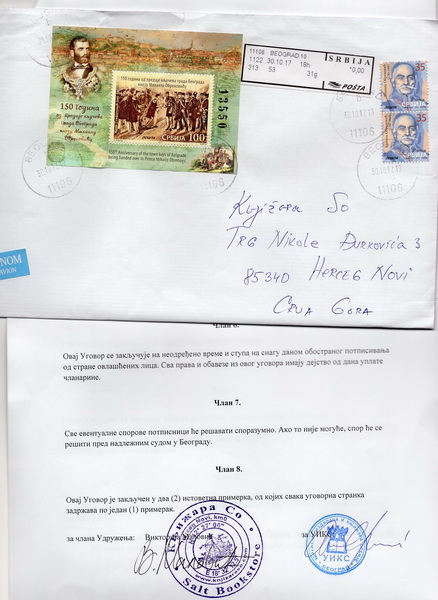 11106 BEOGRAD 10
1122 30.10.17 18h
313 53 31g
SRBIJA
*0,00
POŠTA
150 ГОДИНА
од предаје кључева града Београда
кнезу Михаилу
Обреновићу
150 година од предаје кључева града Београда
кнезу Михаилу Обреновићу
СРБИЈА 100
13550
150th Anniversary of the town keys of Belgrade
being handed over to Prince Mihailo Obrenović
35
СРБИЈА
35
СРБИЈА
11106
11106
11106
NOM
AVION
Knjižara So
TRG Nikole Đurkovića 3
85340 Herceg Novi
Crna Gora
Члан 6.
Овај Уговор се закључује на неодређено време и ступа на снагу даном обостраног потписивања
од стране овлашћених лица. Сва права и обавезе из овог уговора имају дејство од дана уплате
чланарине.
Члан 7.
Све евентуалне спорове потписници ће решавати споразумно. Ако то није могуће, спор ће се
решити пред надлежним судом у Београду.
Члан 8.
Овај Уговор је закључен у два (2) истоветна примерка, од којих свака уговорна странка
задржава по један (1) примерак.
за члана Удружења:
за УИКС
Књижара Со
Salt Bookstore
УИКС
БЕОГРАД